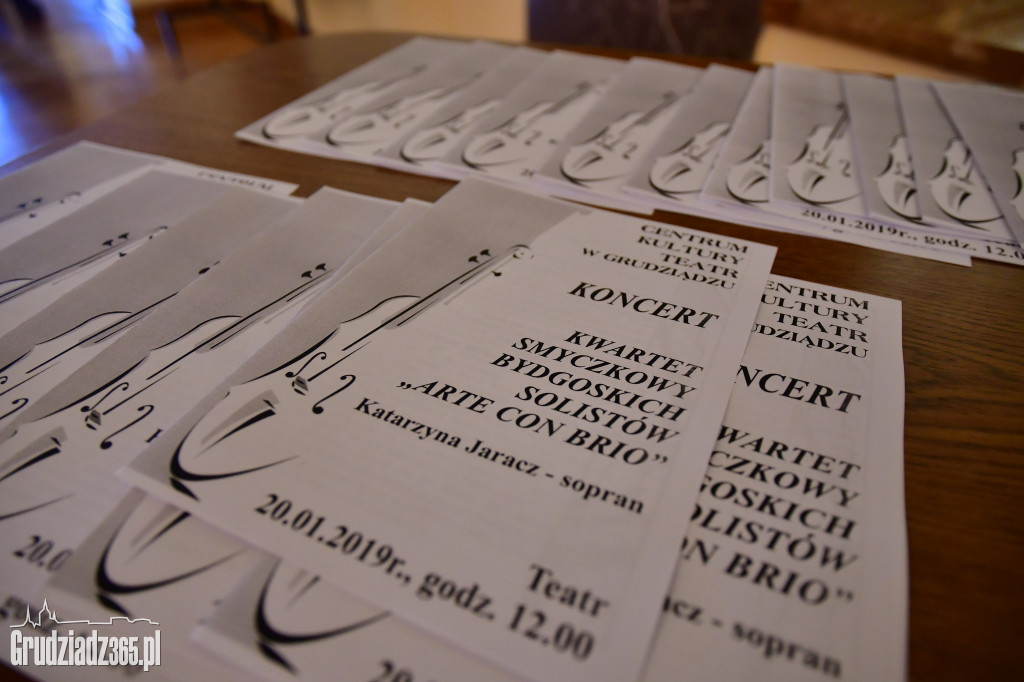 CENTRUM
KULTURY
TEATR
W GRUDZIĄDZU
KONCERT
KWARTET
SMYCZKOWY
BYDGOSKICH
SOLISTÓW
„ARTE CON BRIO”
Katarzyna Jaracz - sopran
20.01.2019r., godz. 12.00
Teatr
CENTRUM
KULTURY
TEATR
UDZIĄDZU
NCERT
WARTET
CZKOWY
GOSKICH
OLISTÓW
ON BRIO”
acz - sopran
20.01.2019r., godz. 12.0
20.0
20.0
Grudziadz365.pl